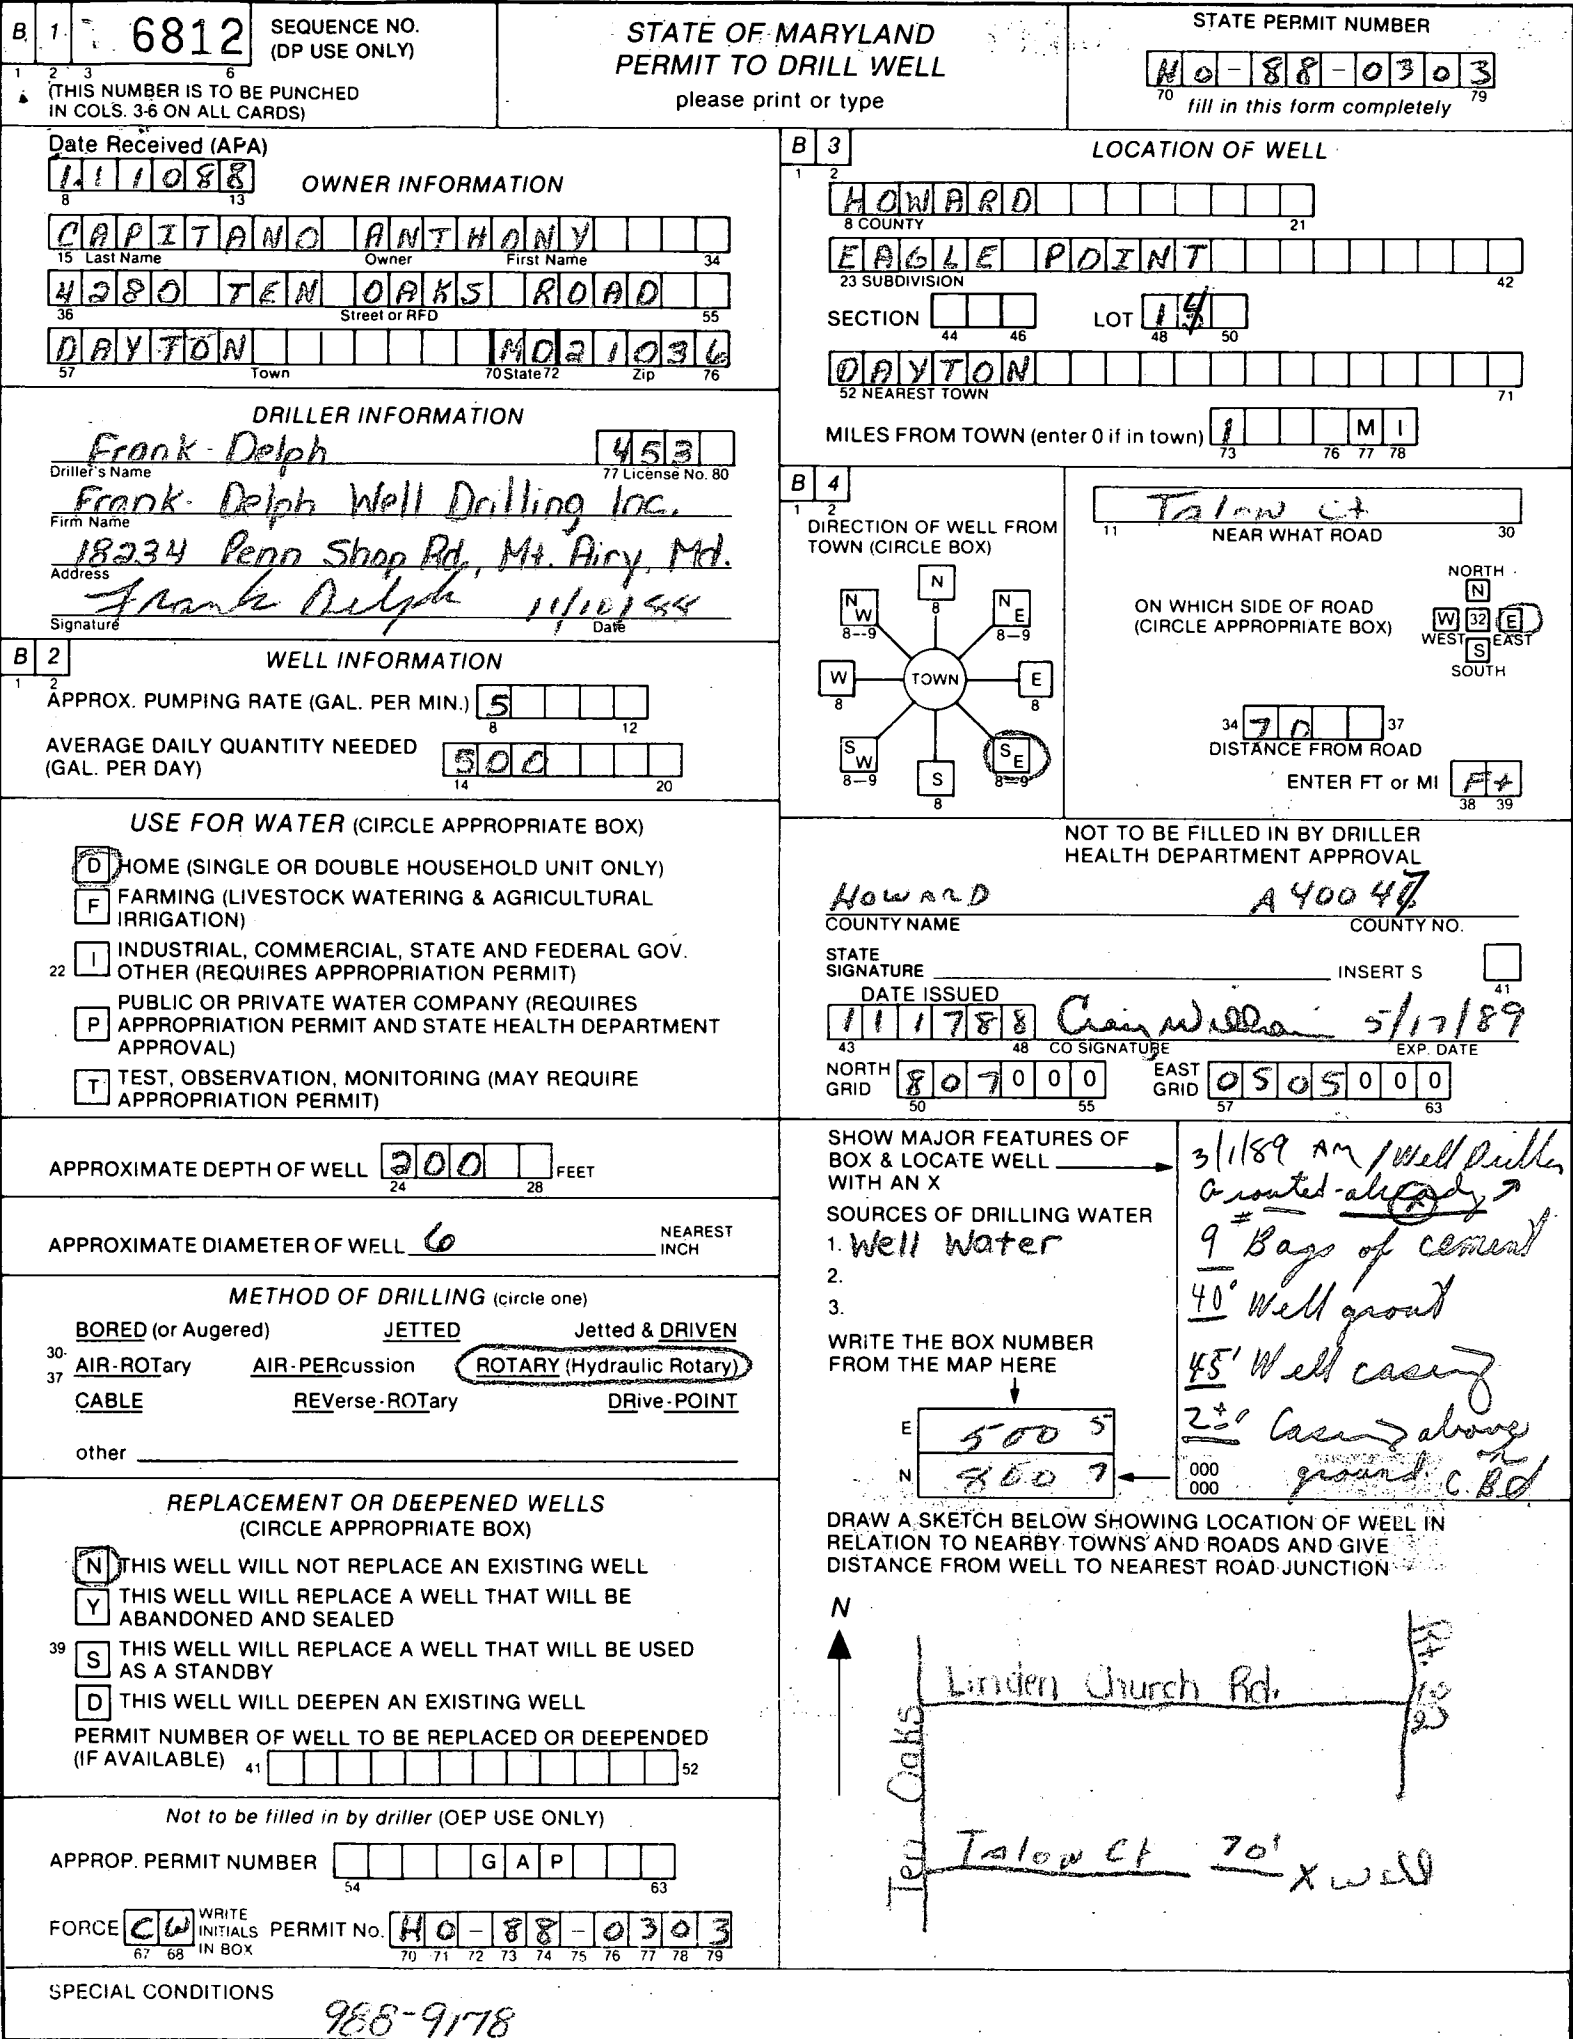 B 1 6812 SEQUENCE NO. (DP USE ONLY)
1 2 3 6
(THIS NUMBER IS TO BE PUNCHED
IN COLS. 3-6 ON ALL CARDS)
STATE OF MARYLAND
PERMIT TO DRILL WELL
please print or type
STATE PERMIT NUMBER
HO-88-0303
70 79
fill in this form completely
Date Received (APA)
111088
8 13
OWNER INFORMATION
CAPITANO ANTHONY
15 Last Name Owner First Name 34
4280 TEN OAKS ROAD
36 Street or RFD 55
DAYTON MD 21036
57 Town 70 State 72 Zip 76
DRILLER INFORMATION
Frank Delph 453
Driller's Name 77 License No. 80
Frank Delph Well Drilling Inc.
Firm Name
18234 Penn Shop Rd, Mt. Airy, Md.
Address
Frank Delph 11/10/88
Signature Date
B 2 WELL INFORMATION
1 2
APPROX. PUMPING RATE (GAL. PER MIN.) 5
8 12
AVERAGE DAILY QUANTITY NEEDED
(GAL. PER DAY) 500
14 20
USE FOR WATER (CIRCLE APPROPRIATE BOX)
D HOME (SINGLE OR DOUBLE HOUSEHOLD UNIT ONLY)
F FARMING (LIVESTOCK WATERING & AGRICULTURAL
IRRIGATION)
I INDUSTRIAL, COMMERCIAL, STATE AND FEDERAL GOV.
22 OTHER (REQUIRES APPROPRIATION PERMIT)
PUBLIC OR PRIVATE WATER COMPANY (REQUIRES
P APPROPRIATION PERMIT AND STATE HEALTH DEPARTMENT
APPROVAL)
T TEST, OBSERVATION, MONITORING (MAY REQUIRE
APPROPRIATION PERMIT)
APPROXIMATE DEPTH OF WELL 200 FEET
24 28
APPROXIMATE DIAMETER OF WELL 6 NEAREST INCH
METHOD OF DRILLING (circle one)
BORED (or Augered) JETTED Jetted & DRIVEN
30-37 AIR-ROTary AIR-PERcussion ROTARY (Hydraulic Rotary)
CABLE REVerse-ROTary DRive-POINT
other
REPLACEMENT OR DEEPENED WELLS
(CIRCLE APPROPRIATE BOX)
N THIS WELL WILL NOT REPLACE AN EXISTING WELL
Y THIS WELL WILL REPLACE A WELL THAT WILL BE
ABANDONED AND SEALED
39 S THIS WELL WILL REPLACE A WELL THAT WILL BE USED
AS A STANDBY
D THIS WELL WILL DEEPEN AN EXISTING WELL
PERMIT NUMBER OF WELL TO BE REPLACED OR DEEPENED
(IF AVAILABLE) 41 52
Not to be filled in by driller (OEP USE ONLY)
APPROP. PERMIT NUMBER G A P
54 63
FORCE CW WRITE INITIALS IN BOX PERMIT No. HO-88-0303
67 68 70 71 72 73 74 75 76 77 78 79
SPECIAL CONDITIONS
988-9178
B 3 LOCATION OF WELL
1 2
HOWARD
8 COUNTY 21
EAGLE POINT
23 SUBDIVISION 42
SECTION LOT 14
44 46 48 50
DAYTON
52 NEAREST TOWN 71
MILES FROM TOWN (enter 0 if in town) 1 M I
73 76 77 78
B 4
1 2
DIRECTION OF WELL FROM
TOWN (CIRCLE BOX)
N 8
NW 8-9
NE 8-9
W 8
TOWN
E 8
SW 8-9
S 8
SE 8-9
Talon Ct
11 NEAR WHAT ROAD 30
ON WHICH SIDE OF ROAD
(CIRCLE APPROPRIATE BOX)
NORTH
N
W 32 E
WEST EAST
S
SOUTH
34 70 37
DISTANCE FROM ROAD
ENTER FT or MI Ft
38 39
NOT TO BE FILLED IN BY DRILLER
HEALTH DEPARTMENT APPROVAL
HOWARD A 40047
COUNTY NAME COUNTY NO.
STATE
SIGNATURE INSERT S
41
DATE ISSUED
111788 Craig Williams 5/17/89
43 48 CO SIGNATURE EXP. DATE
NORTH GRID 807000 EAST GRID 0505000
50 55 57 63
SHOW MAJOR FEATURES OF
BOX & LOCATE WELL
WITH AN X
SOURCES OF DRILLING WATER
1. Well Water
2.
3.
WRITE THE BOX NUMBER
FROM THE MAP HERE
E 500 5
N 800 7
3/1/89 AM / Well Driller
Grouted already
9 # Bags of cement
40' Well grout
45' Well casing
2±' Casing above
000 ground
000
DRAW A SKETCH BELOW SHOWING LOCATION OF WELL IN
RELATION TO NEARBY TOWNS AND ROADS AND GIVE
DISTANCE FROM WELL TO NEAREST ROAD JUNCTION
N
Linden Church Rd.
Ten Oaks
Talon Ct 70' X well